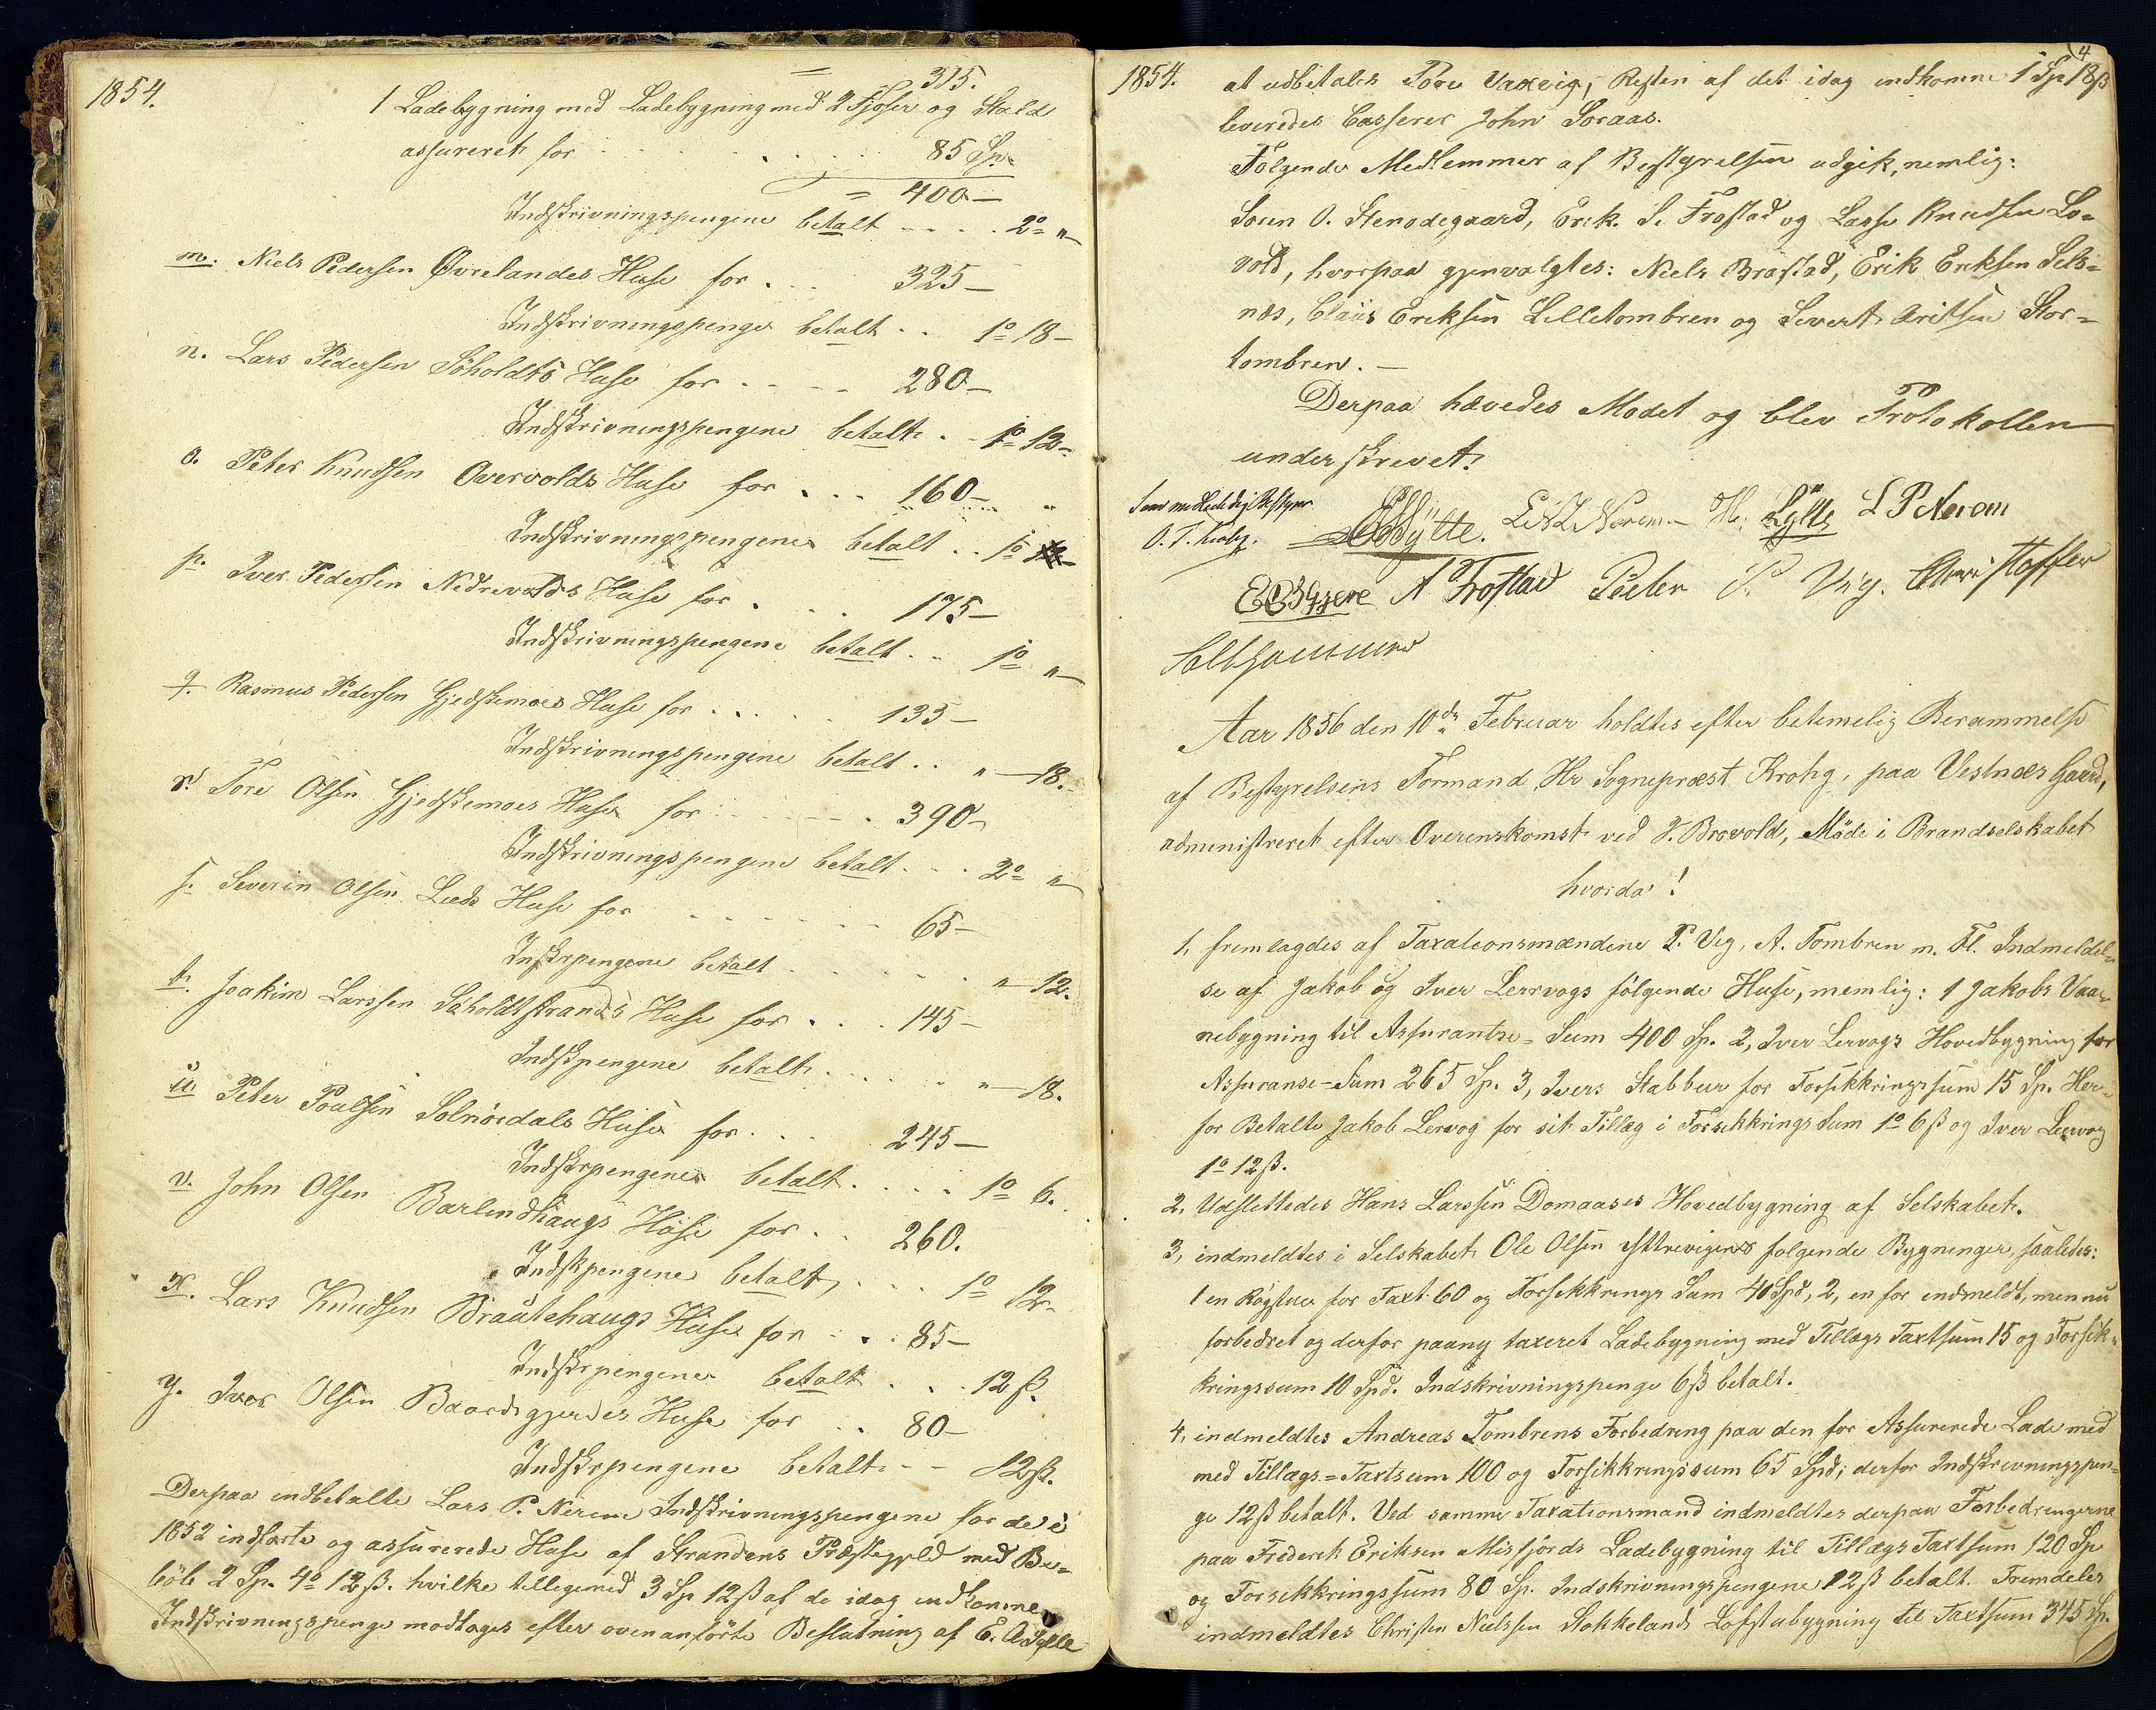 1854.
= 315.
1 Ladebygning med Ladebygning med 2 Fjøser og Stald
assureret for . . . . . 85 Sp.
= 400 —
Indskrivningspengene betalt . . . . 2º „ —
m. Niels Pedersen Øvrelandes Huse for . . . 325 —
Indskrivningspenge betalt . . 1º 18 —
n. Lars Pedersen Söholdts Huse for . . . . 280 —
Indskrivningspengene betalt . . 1º 12 —
o. Peter Knudsen Overvolds Huse for . . . 160 —
Indskrivningspengene betalt . . 1º
p. Iver Pedersen Nedrevolds Huse for . . . 175 —
Indskrivningspengene betalt . . 1º „ —
q. Rasmus Pedersen Gjedskemoes Huse for . . . . 135 —
Indskrivningspengene betalt . . „ — 18.
r. Tore Olsen Gjedskemoes Huse for . . . . . 390 —
Indskrivningspengene betalt . . . 2º „ —
s. Severin Olsen Leeds Huse for . . . . . 65 —
Inskrpengene betalt . . . . . . „ — 12.
t. Joakim Larssen Söholdtstrands Huse for . . . 145 —
Indskpengene betalt . . . . . „ — 18.
u Peter Poulsen Solnördals Huse for . . . 245 —
Indskrpengene betalt . . . . 1º 6.
v. John Olsen Barlindhaugs Huse for . . 260.
Indskpengene betalt, . . . 1º 12 —
x. Lars Knudsen Brautehaugs Huse for . . . 85 —
Indskrpengene betalt . . . 12 ß.
y. Iver Olsen Baardsgjerdes Huse for . . 80 —
Indskrpengene betalt . — 12 ß.
Derpaa indbetalte Lars P. Nerem Indskrivningspengene for de i
1852 indførte og assurerede Huse af Strandens Præstegjeld med Be-
löb 2 Sp. 4º 12 ß. hvilke tilligemed 3 Sp 12 ß af de idag indkomne
Indskrivningspenge modtages efter ovenanførte Beslutning af E. A Sylte
4
1854. at udbetales Tore Vaxvig; Resten af det idag indkomne 1 Sp 18 ß
leveredes Casserer John Soraas.
Følgende Medlemmer af Bestyrelsen udgik, nemlig:
Soren O. Stenodegaard, Erik. S. Frostad og Lasse Knudsen Lo-
vold, hvorpaa gjenvalgtes: Niels Brastad, Erik Eriksen Sels-
næs, Claus Eriksen Lilletombren og Sivert Aritsen Stor-
tombren. —
Derpaa hævedes Modet og blev Protokollen
underskrevet.
Som
O. T. Krohg. Sylte. Nerem H. Sylte L P Nerem
A Frostad Peter P. Vig. Christoffer
Aar 1856 den 10de Februar holdtes efter betimelig Berammelse
af Bestyrelsens Formand, Hr Sognepræst Krohg, paa Vestnæs Gaard,
administreret efter Overenskomst ved V. Brovold, Möde i Brandselskabet
hvorda!
1, fremlagdes af Taxationsmændene P. Vig, A. Tombren m. Fl. Indmeldel-
se af Jakob og Iver Lervogs følgende Huse, nemlig: 1 Jakobs Vaa-
nebygning til Assurantse-Sum 400 Sp. 2, Iver Lervogs Hovedbygning for
Assuranse-Sum 265 Sp. 3, Ivers Stabbur for Forsikkringssum 15 Sp. Her-
for Betalte Jakob Lervog for sit Tillæg i Forsikkrings Sum 1º 6 ß og Iver Lervog
1º 12 ß.
2, Udslettedes Hans Larssen Domaases Hovedbygning af Selskabet.
3, indmeldtes i Selskabet Ole Olsen følgende Bygninger, saaledes:
1 en Rögstue for Taxt 60 og Forsikkrings Sum 40 Spd, 2, en for indmeldt, men nu
forbedret og derfor paany taxeret Ladebygning med Tillægs Taxtsum 15 og Forsik-
kringssum 10 Spd. Indskrivningspenge 6 ß betalt.
4, indmeldtes Andreas Tombrens Forbedring paa den for Assurerede Lade med
med Tillægs-Taxtsum 100 og Forsikkringssum 65 Spd; derfor Indskrivningspen-
ge 12 ß betalt. Ved samme Taxationsmænd indmeldtes derpaa Forbedringerne
paa Frederik Eriksen Misfjords Ladebygning til Tillægs Taxtsum 120 Sp
og Forsikkringssum 80 Sp. Indskrivningspengene 12 ß betalt. Fremdeles
indmeldtes Christen Nielssen Stokkelands Loftstubygning til Taxtsum 345 Sp.